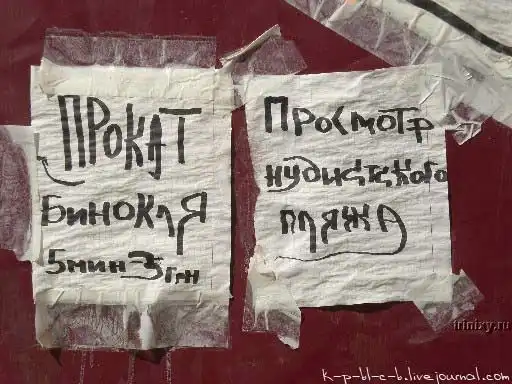 ПРОКАТ
БИНОКЛЯ
5мин 3грн
Просмотр
нудистского
пляжа
irinixy.ru
k-p-bl-c-b.livejournal.com